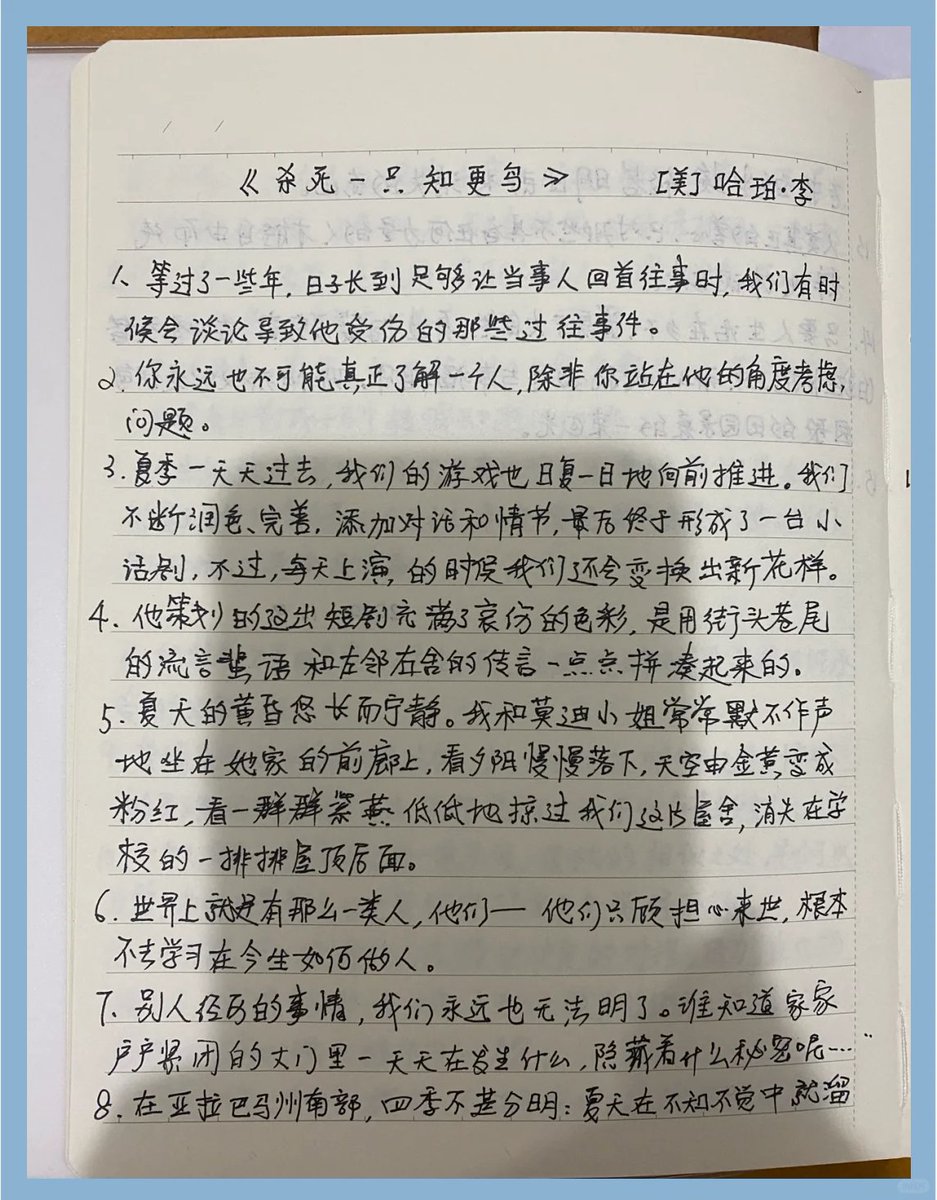 《杀死一只知更鸟》 [美]哈珀·李
1、等过了一些年,日子长到足够让当事人回首往事时,我们有时
候会谈论导致他受伤的那些过往事件。
2、你永远也不可能真正了解一个人,除非你站在他的角度考虑
问题。
3.夏季一天天过去,我们的游戏也日复一日地向前推进。我们
不断润色、完善,添加对话和情节,最后终于形成了一台小
话剧,不过,每天上演的时候我们还会变换出新花样。
4、他策划的这出短剧充满了哀伤的色彩,是用街头巷尾
的流言蜚语和左邻右舍的传言一点点拼凑起来的。
5、夏天的黄昏悠长而宁静。我和莫迪小姐常常默不作声
地坐在她家的前廊上,看夕阳慢慢落下,天空由金黄变成
粉红,看一群群紫燕低低地掠过我们这片屋舍,消失在学
校的一排排屋顶后面。
6、世界上就是有那么一类人,他们——他们只顾担心来世,根本
不去学习在今生如何做人。
7、别人经历的事情,我们永远也无法明了。谁知道家家
户户紧闭的大门里一天天在发生什么,隐藏着什么秘密呢……
8、在亚拉巴马州南部,四季不甚分明:夏天在不知不觉中就溜